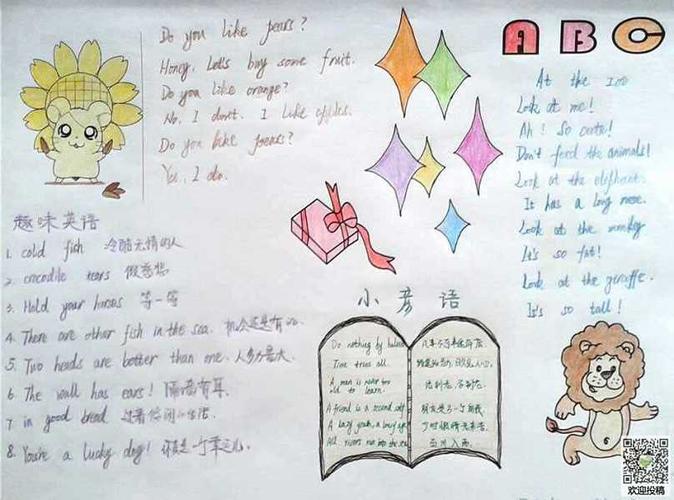 Do you like pears?
Honey, Let's buy some fruit.
Do you like orange?
No, I don't. I like apples.
Do you like pears?
Yes, I do.
A B C
At the zoo
Look at me!
Ah! So cute!
Don't feed the animals!
Look at the elephant.
It has a long nose.
Look at the monkey
It's so fat!
Look at the giraffe.
It's so tall!
趣味英语
1. cold fish 冷酷无情的人
2. crocodile tears 假慈悲
3. Hold your horses 等一等
4. There are other fish in the sea. 机会还是有的.
5. Two heads are better than one. 人多力量大.
6. The wall has ears! 隔墙有耳.
7. in good bread 过着悠闲的生活
8. You're a lucky dog! 你真是一个幸运儿.
小彦语
Do nothing by halves
Time tries all.
A man is never too
old to learn.
A friend is a second self
A lazy youth, a lousy age
All rivers run into the sea
活到老，学到老.
欢迎投稿